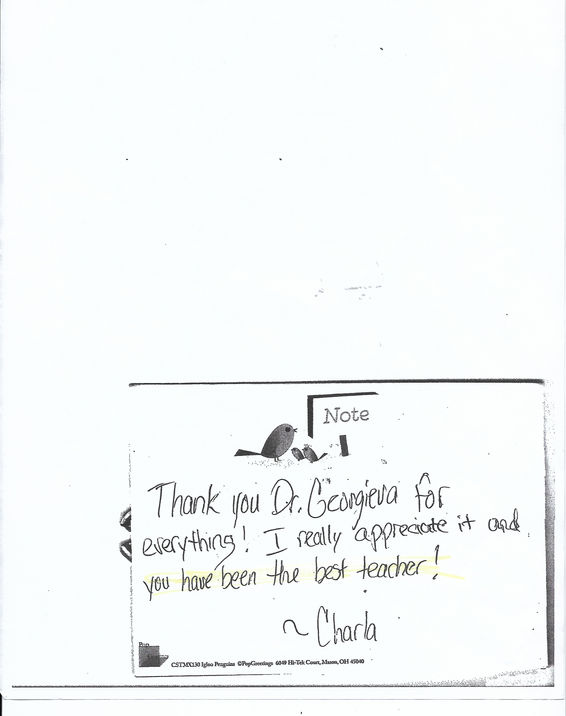 Note
Thank you Dr. Georgieva for
everything! I really appreciate it and
you have been the best teacher!
~ Charla
Pop
CSTMX130 Igloo Penguins ©PopGreetings 6049 Hi-Tek Court, Mason, OH 45040